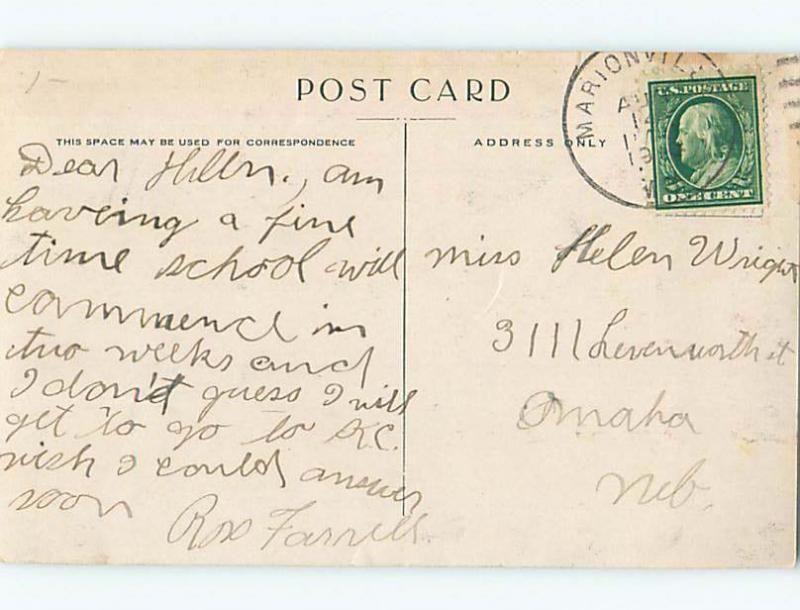 1-
POST CARD
THIS SPACE MAY BE USED FOR CORRESPONDENCE
ADDRESS ONLY
MARIONVILL
U.S. POSTAGE
ONE CENT
Dear Hillen., am
haveing a fine
time school will
commence in
two weeks and
I don't guess I will
get to go to K.C.
wish I could answer
soon
Farrell.
miss Helen Wright
3111 Levenworth st
Omaha
Neb.